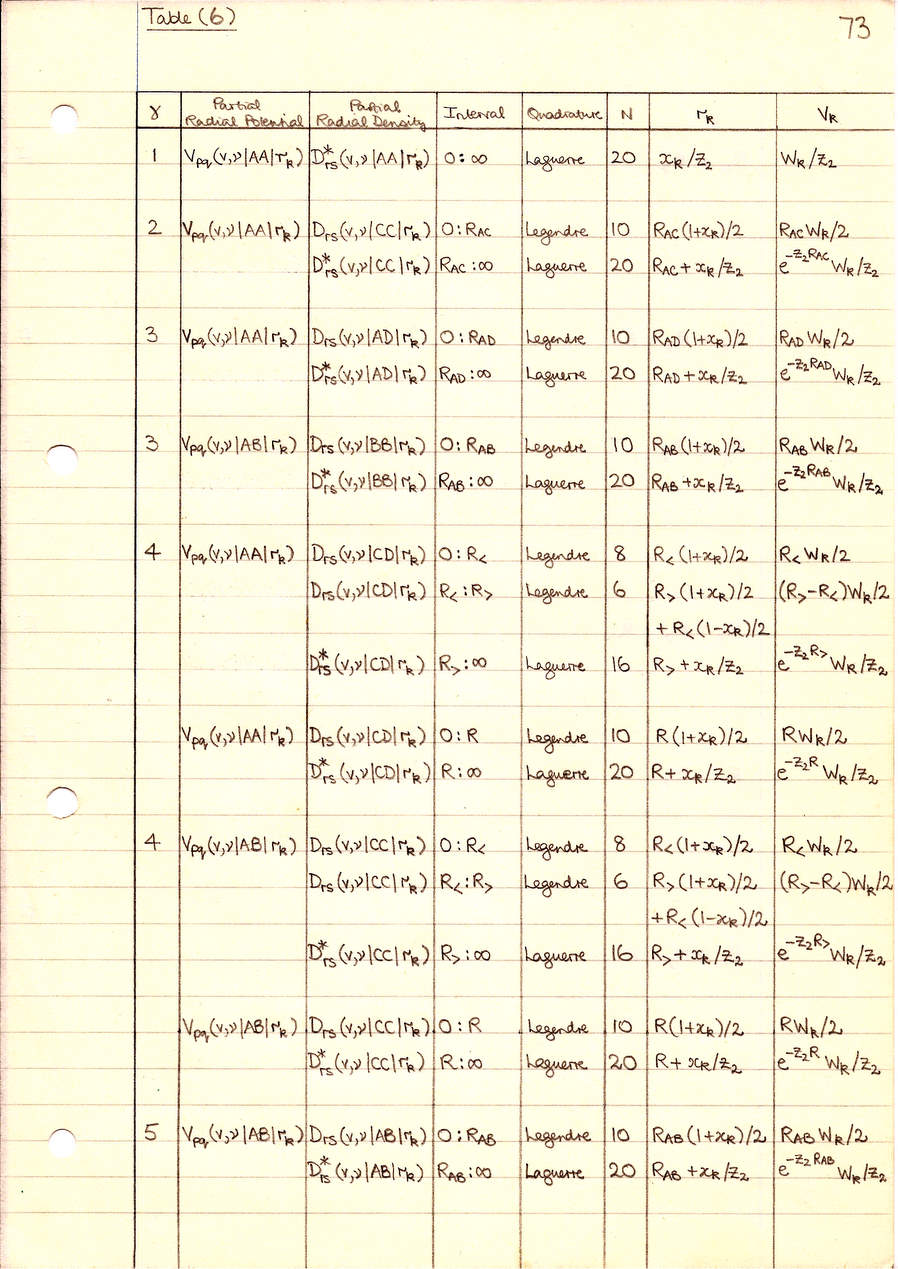 Table (6)
73
γ Partial Radial Potential Partial Radial Density Interval Quadrature N r_K V_K
1 V_pq(ν,ν|AA|r_K) D*_rs(ν,ν|AA|r_K) 0:∞ Laguerre 20 x_K/Z_2 W_K/Z_2
2 V_pq(ν,ν|AA|r_K) D_rs(ν,ν|CC|r_K) 0:R_AC Legendre 10 R_AC(1+x_K)/2 R_AC W_K/2
D*_rs(ν,ν|CC|r_K) R_AC:∞ Laguerre 20 R_AC + x_K/Z_2 e^{-Z_2R_AC} W_K/Z_2
3 V_pq(ν,ν|AA|r_K) D_rs(ν,ν|AD|r_K) 0:R_AD Legendre 10 R_AD(1+x_K)/2 R_AD W_K/2
D*_rs(ν,ν|AD|r_K) R_AD:∞ Laguerre 20 R_AD + x_K/Z_2 e^{-Z_2R_AD} W_K/Z_2
3 V_pq(ν,ν|AB|r_K) D_rs(ν,ν|BB|r_K) 0:R_AB Legendre 10 R_AB(1+x_K)/2 R_AB W_K/2
D*_rs(ν,ν|BB|r_K) R_AB:∞ Laguerre 20 R_AB + x_K/Z_2 e^{-Z_2R_AB} W_K/Z_2
4 V_pq(ν,ν|AA|r_K) D_rs(ν,ν|CD|r_K) 0:R_< Legendre 8 R_<(1+x_K)/2 R_< W_K/2
D_rs(ν,ν|CD|r_K) R_<:R_> Legendre 6 R_>(1+x_K)/2 (R_>-R_<)W_K/2
+R_<(1-x_K)/2
D*_rs(ν,ν|CD|r_K) R_>:∞ Laguerre 16 R_> + x_K/Z_2 e^{-Z_2R_>} W_K/Z_2
V_pq(ν,ν|AA|r_K) D_rs(ν,ν|CD|r_K) 0:R Legendre 10 R(1+x_K)/2 RW_K/2
D*_rs(ν,ν|CD|r_K) R:∞ Laguerre 20 R + x_K/Z_2 e^{-Z_2R} W_K/Z_2
4 V_pq(ν,ν|AB|r_K) D_rs(ν,ν|CC|r_K) 0:R_< Legendre 8 R_<(1+x_K)/2 R_< W_K/2
D_rs(ν,ν|CC|r_K) R_<:R_> Legendre 6 R_>(1+x_K)/2 (R_>-R_<)W_K/2
+R_<(1-x_K)/2
D*_rs(ν,ν|CC|r_K) R_>:∞ Laguerre 16 R_> + x_K/Z_2 e^{-Z_2R_>} W_K/Z_2
V_pq(ν,ν|AB|r_K) D_rs(ν,ν|CC|r_K) 0:R Legendre 10 R(1+x_K)/2 RW_K/2
D*_rs(ν,ν|CC|r_K) R:∞ Laguerre 20 R + x_K/Z_2 e^{-Z_2R} W_K/Z_2
5 V_pq(ν,ν|AB|r_K) D_rs(ν,ν|AB|r_K) 0:R_AB Legendre 10 R_AB(1+x_K)/2 R_AB W_K/2
D*_rs(ν,ν|AB|r_K) R_AB:∞ Laguerre 20 R_AB + x_K/Z_2 e^{-Z_2R_AB} W_K/Z_2